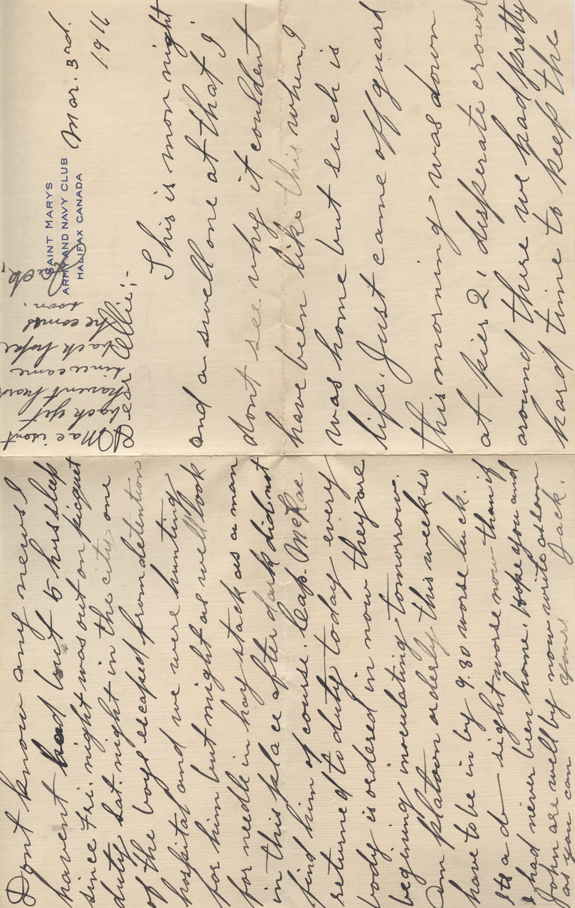 SAINT MARYS
ARMY AND NAVY CLUB
HALIFAX CANADA
Mar. 3rd.
1916
Dear Allie;-
This is mon night
and a swell one at that I
dont see why it couldent
have been like this when I
was home but such is
life. Just came off guard
this morning was down
at pier 2, disperate crowd
around there we had pretty
hard time to keep the
Mac isent
back yet
havent heard
since came
back hope
he comes
soon.
Jack,
Dont know any news I
havent had but 5 hrs sleep
since Fri. night was out on picquet
duty Sat night in the city one
of the boys escaped from detention
hospital and we were hunting
for him but might as well look
for needle in hay stack as a man
in this place after dark did not
find him of course. Cap. McRae.
returned to duty today every
body is ordered in now they are
begening inoculating tomorrow.
Am platoon orderly this week so
have to be in by 9.30 worse luck.
Its a d— sight worse now than if
I had never been home. Hope you and
John are well by now write as soon
as you can yours Jack.